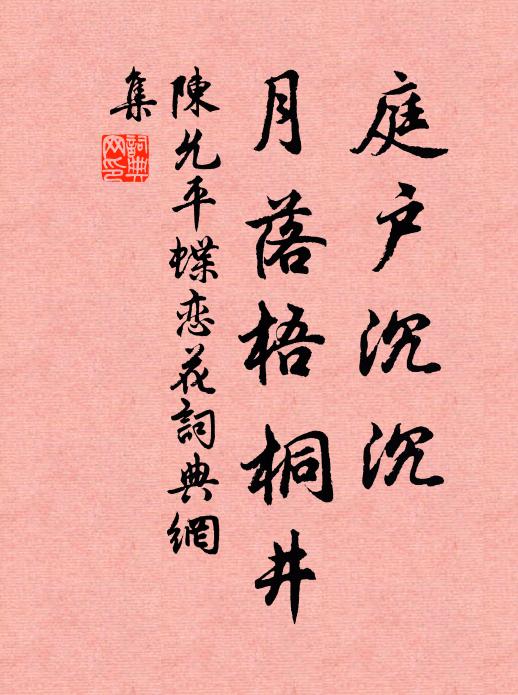 庭户沉沉
月落梧桐井
陳允平蝶恋花詞典網
集
詞典
网印